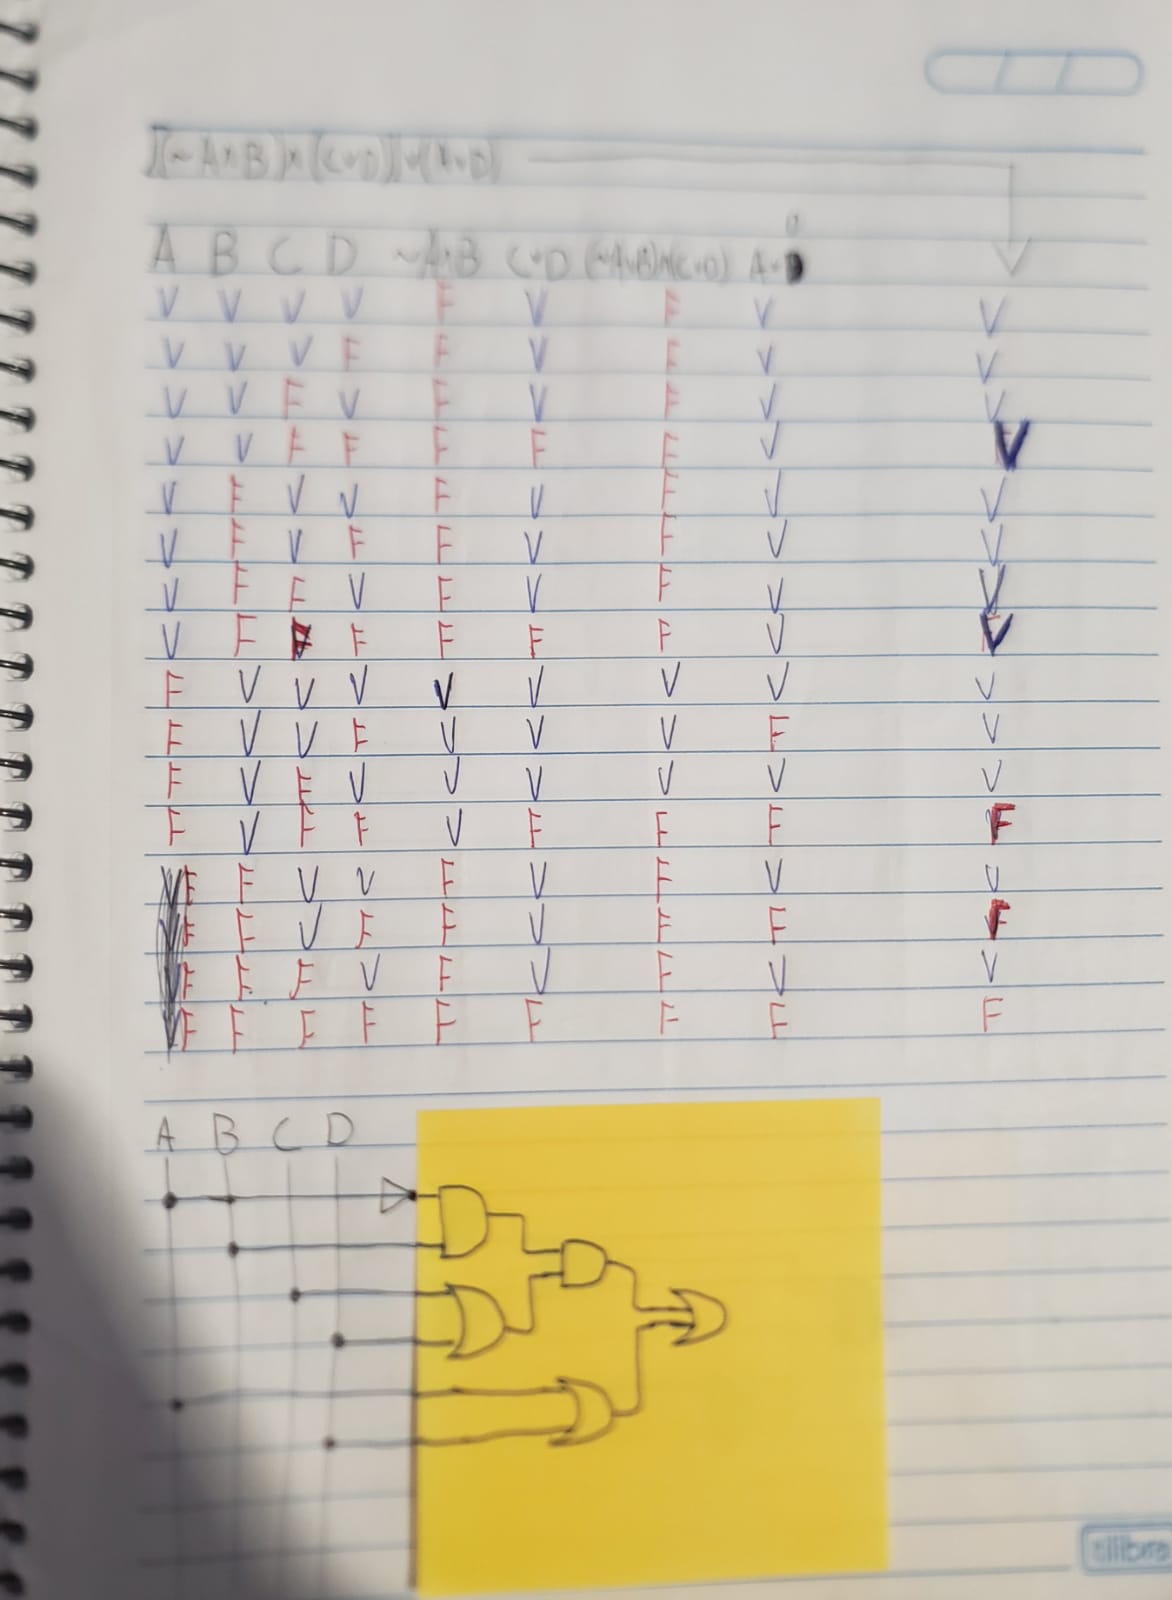 [(~A∧B)∧(C∨D)]∨(A∨D)
A B C D ~A∧B C∨D (~A∧B)∧(C∨D) A∨D
V V V V F V F V V
V V V F F V F V V
V V F V F V F V V
V V F F F F F V V
V F V V F V F V V
V F V F F V F V V
V F F V F V F V V
V F F F F F F V V
F V V V V V V V V
F V V F V V V F V
F V F V V V V V V
F V F F V F F F F
F F V V F V F V V
F F V F F V F F F
F F F V F V F V V
F F F F F F F F F
A B C D
tilibra